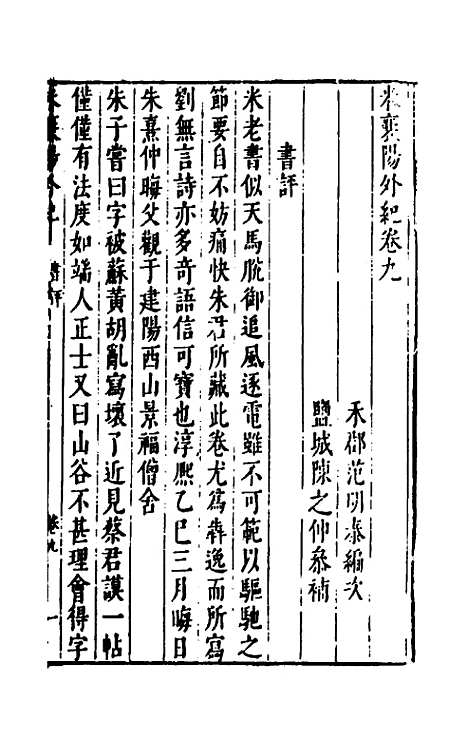 米襄陽外紀卷九
禾郡范明泰編次
鹽城陳之仲參補
書評
米老書似天馬脫御追風逐電雖不可範以驅馳之
節要自不妨痛快朱君所藏此卷尤爲犇逸而所寫
劉無言詩亦多奇語信可寶也淳熙乙巳三月晦日
朱熹仲晦父觀于建陽西山景福僧舍
朱子嘗曰字被蘇黃胡亂寫壞了近見蔡君謨一帖
僅僅有法度如端人正士又曰山谷不甚理會得字
米襄陽外紀 書評 卷九 一